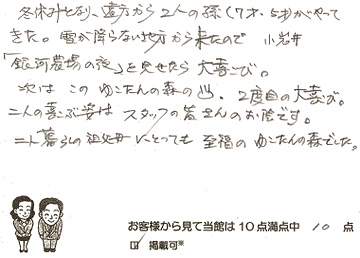 冬休みとなり、遠方から2人の孫(7才、5才)がやって
きた。雪が降らない地方から来たので 小岩井
「銀河農場の夜」を見せたら 大喜び。
次は この ゆこたんの森の 、2度目の大喜び。
二人の喜ぶ姿は スタッフの皆さんのお陰です。
二人暮らしの祖父母にとっても 至福の ゆこたんの森でした。
お客様から見て当館は10点満点中 10 点
掲載可※